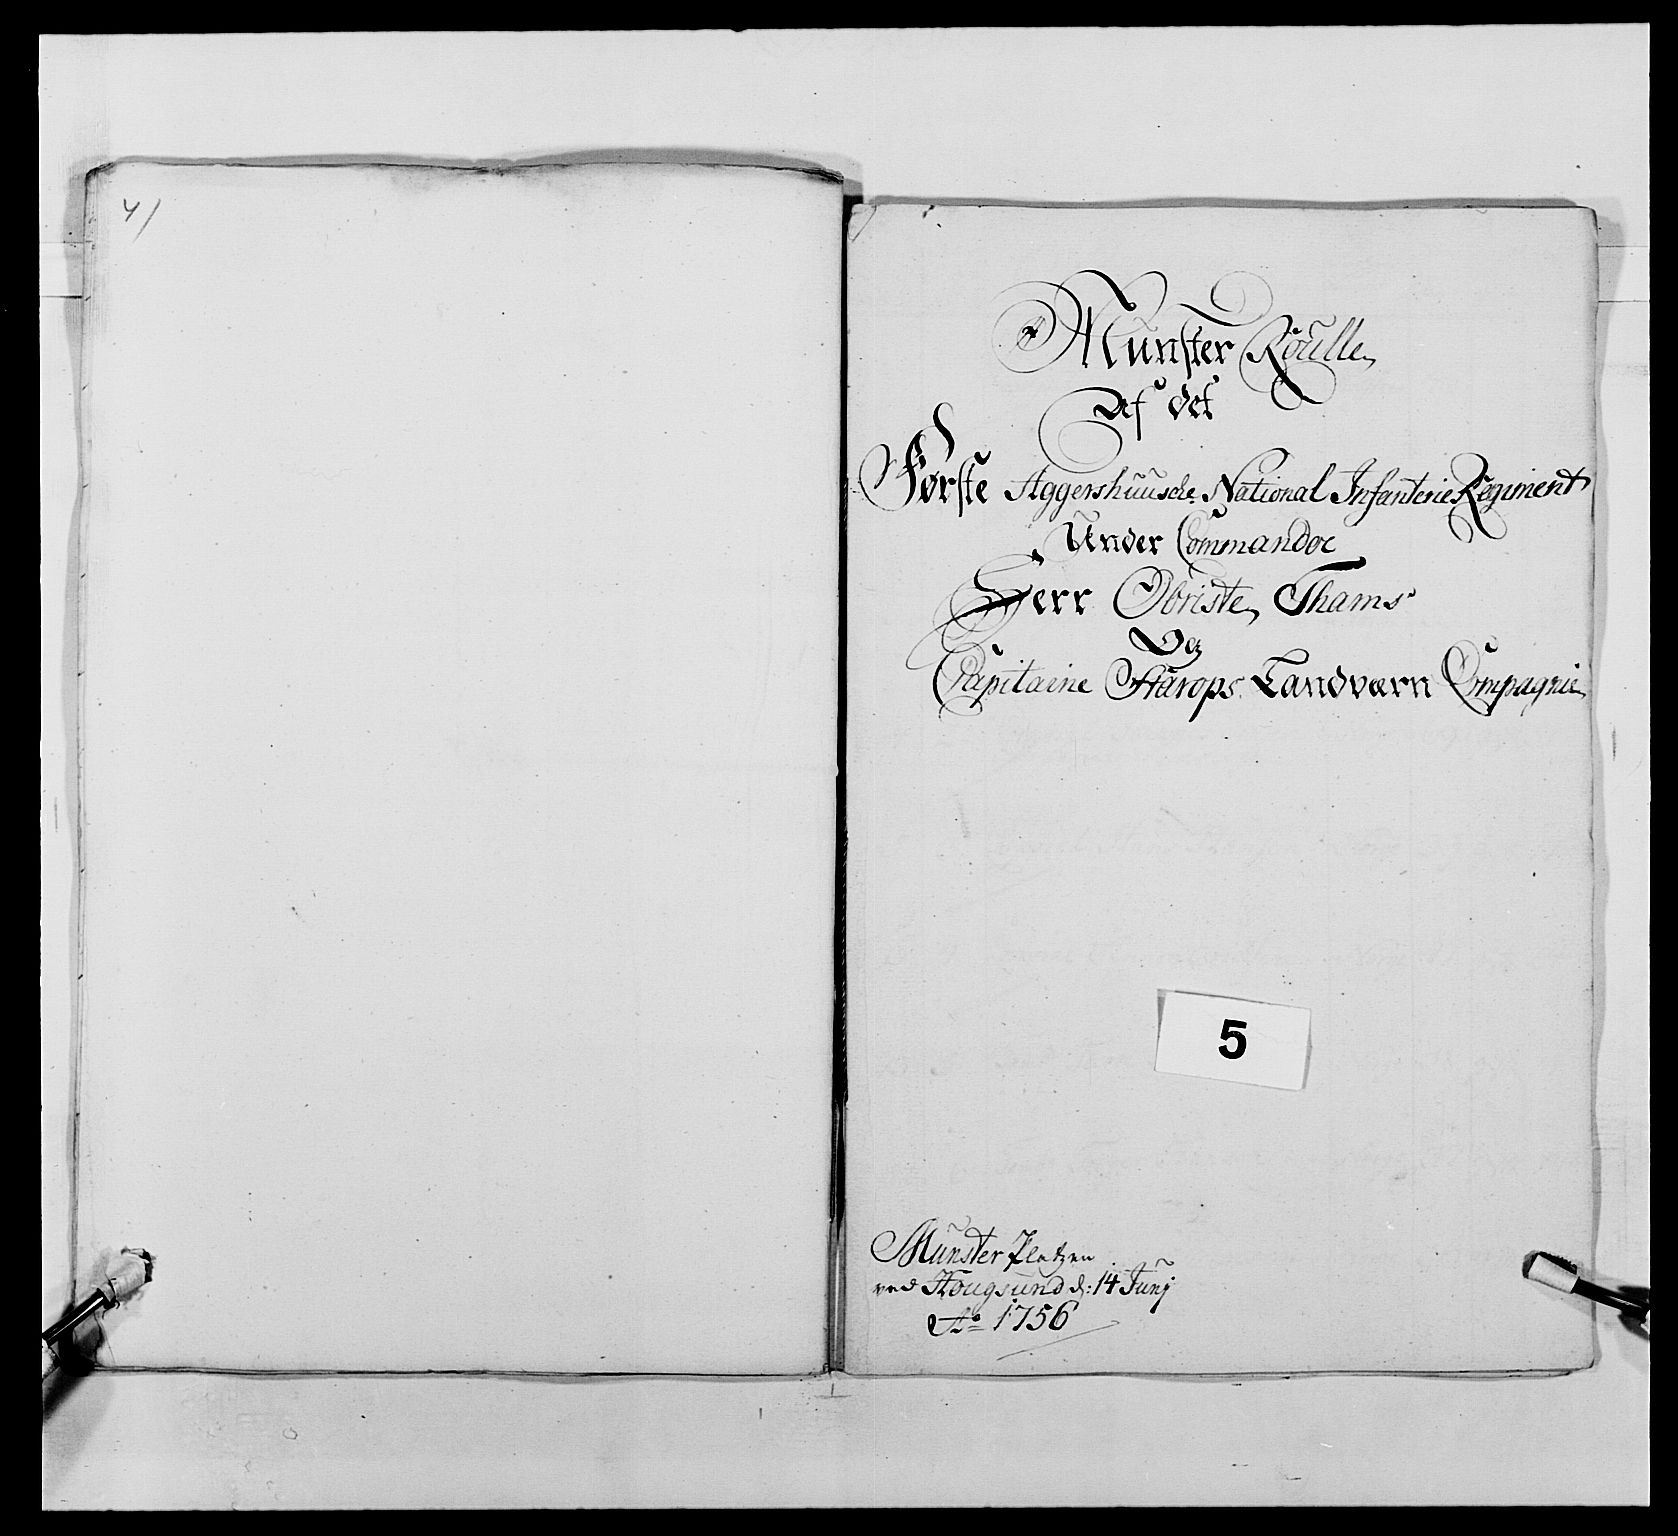 4/
Munster Roulle
Af det
Første Aggershuusche National Infanterie Regiment
Under Commandoe
Herr Obriste Thams
Og
Capitaine Starops Landværn Compagnie
5
Munster Platzen
ved Hougsund d: 14 Junj
Ao 1756